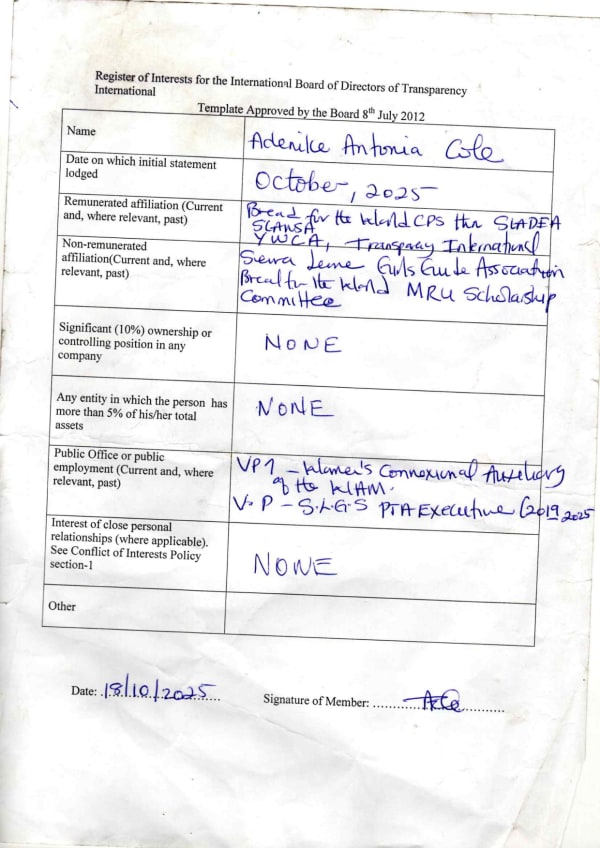 Register of Interests for the International Board of Directors of Transparency
International
Template Approved by the Board 8th July 2012
Name
Adenike Antonia Cole
Date on which initial statement
lodged
October, 2025
Remunerated affiliation (Current
and, where relevant, past)
Bread for the World CPS thru SLADEA
SLANSA
YWCA, Transparency International
Non-remunerated
affiliation(Current and, where
relevant, past)
Sierra Leone Girls Guide Association
Bread for the World MRU Scholarship
Committee
Significant (10%) ownership or
controlling position in any
company
NONE
Any entity in which the person has
more than 5% of his/her total
assets
NONE
Public Office or public
employment (Current and, where
relevant, past)
VP1 – Women's Connexional Auxiliary
of the WAM.
V.P – S.L.G.S PTA Executive (2019 2025
Interest of close personal
relationships (where applicable).
See Conflict of Interests Policy
section-1
NONE
Other
Date: 18/10/2025
Signature of Member: